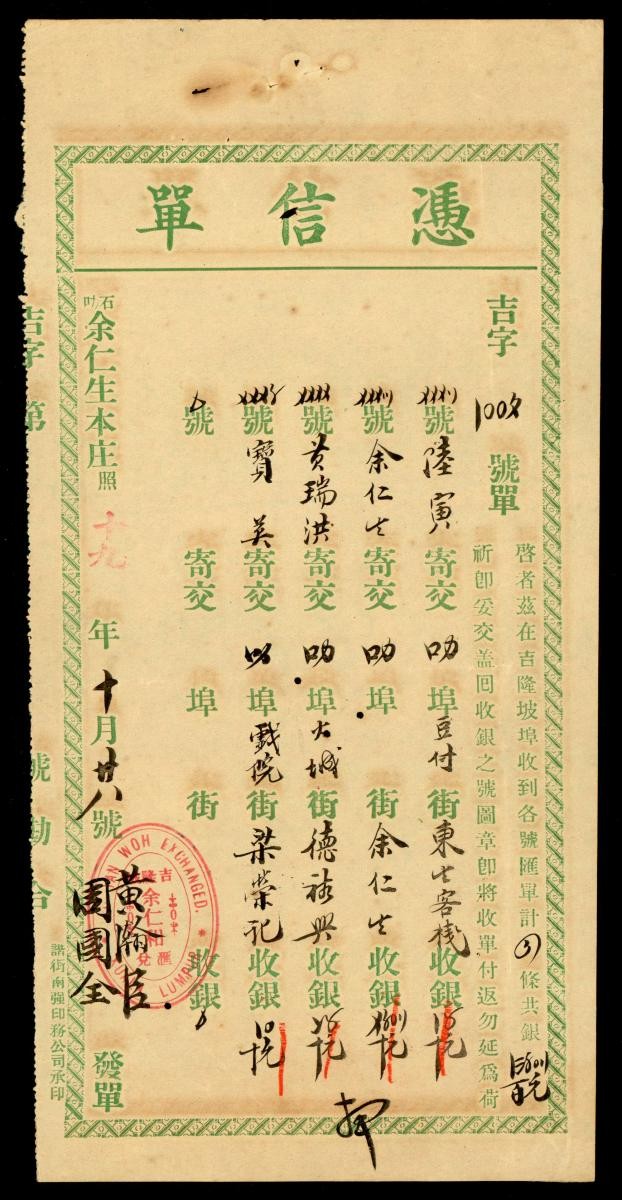 憑信單
吉字 號單
啓者茲在吉隆坡埠收到各號匯單計 條共銀
祈卽妥交盖囘收銀之號圖章卽將收單付返勿延爲荷
號陸寅寄交叻埠豆付街東生客棧收銀
號余仁生寄交叻埠 街余仁生收銀
號黄瑞洪寄交叻埠大城街德祐興收銀
號寶英寄交叻埠戲院街梁榮記收銀
號 寄交 埠 街 收銀
石叻余仁生本庄照
十九年十月廿八號
黃瀚臣
周國全
發單
EXCHANGED.
吉隆
余仁和
匯兌
吉字第 號勘合
諧街南强印務公司承印